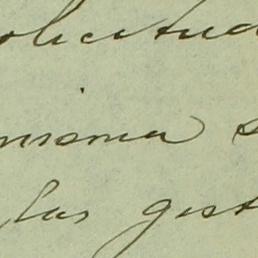 olicitud
misma s
las gest